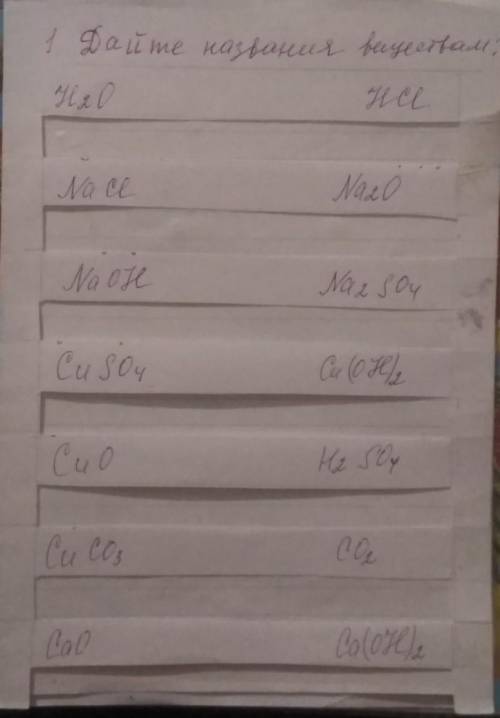 1 Дайте названия веществам:
H₂O HCl
NaCl Na₂O
NaOH Na₂SO₄
CuSO₄ Cu(OH)₂
CuO H₂SO₄
CuCO₃ CO₂
CaO Ca(OH)₂